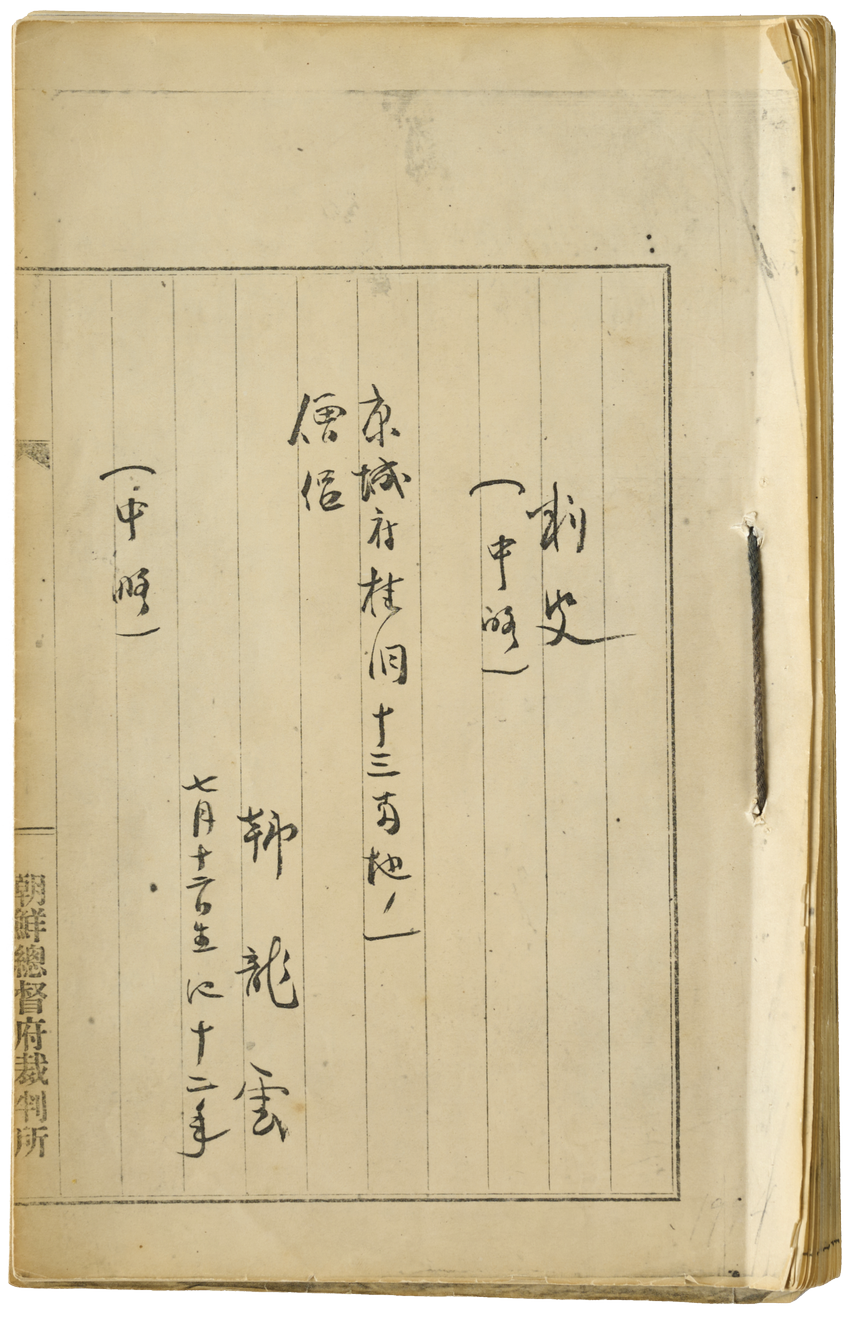 判決
(中略)
京城府桂洞十三番地ノ一
僧侶
韓龍雲
七月十二日生四十二年
(中略)
朝鮮總督府裁判所